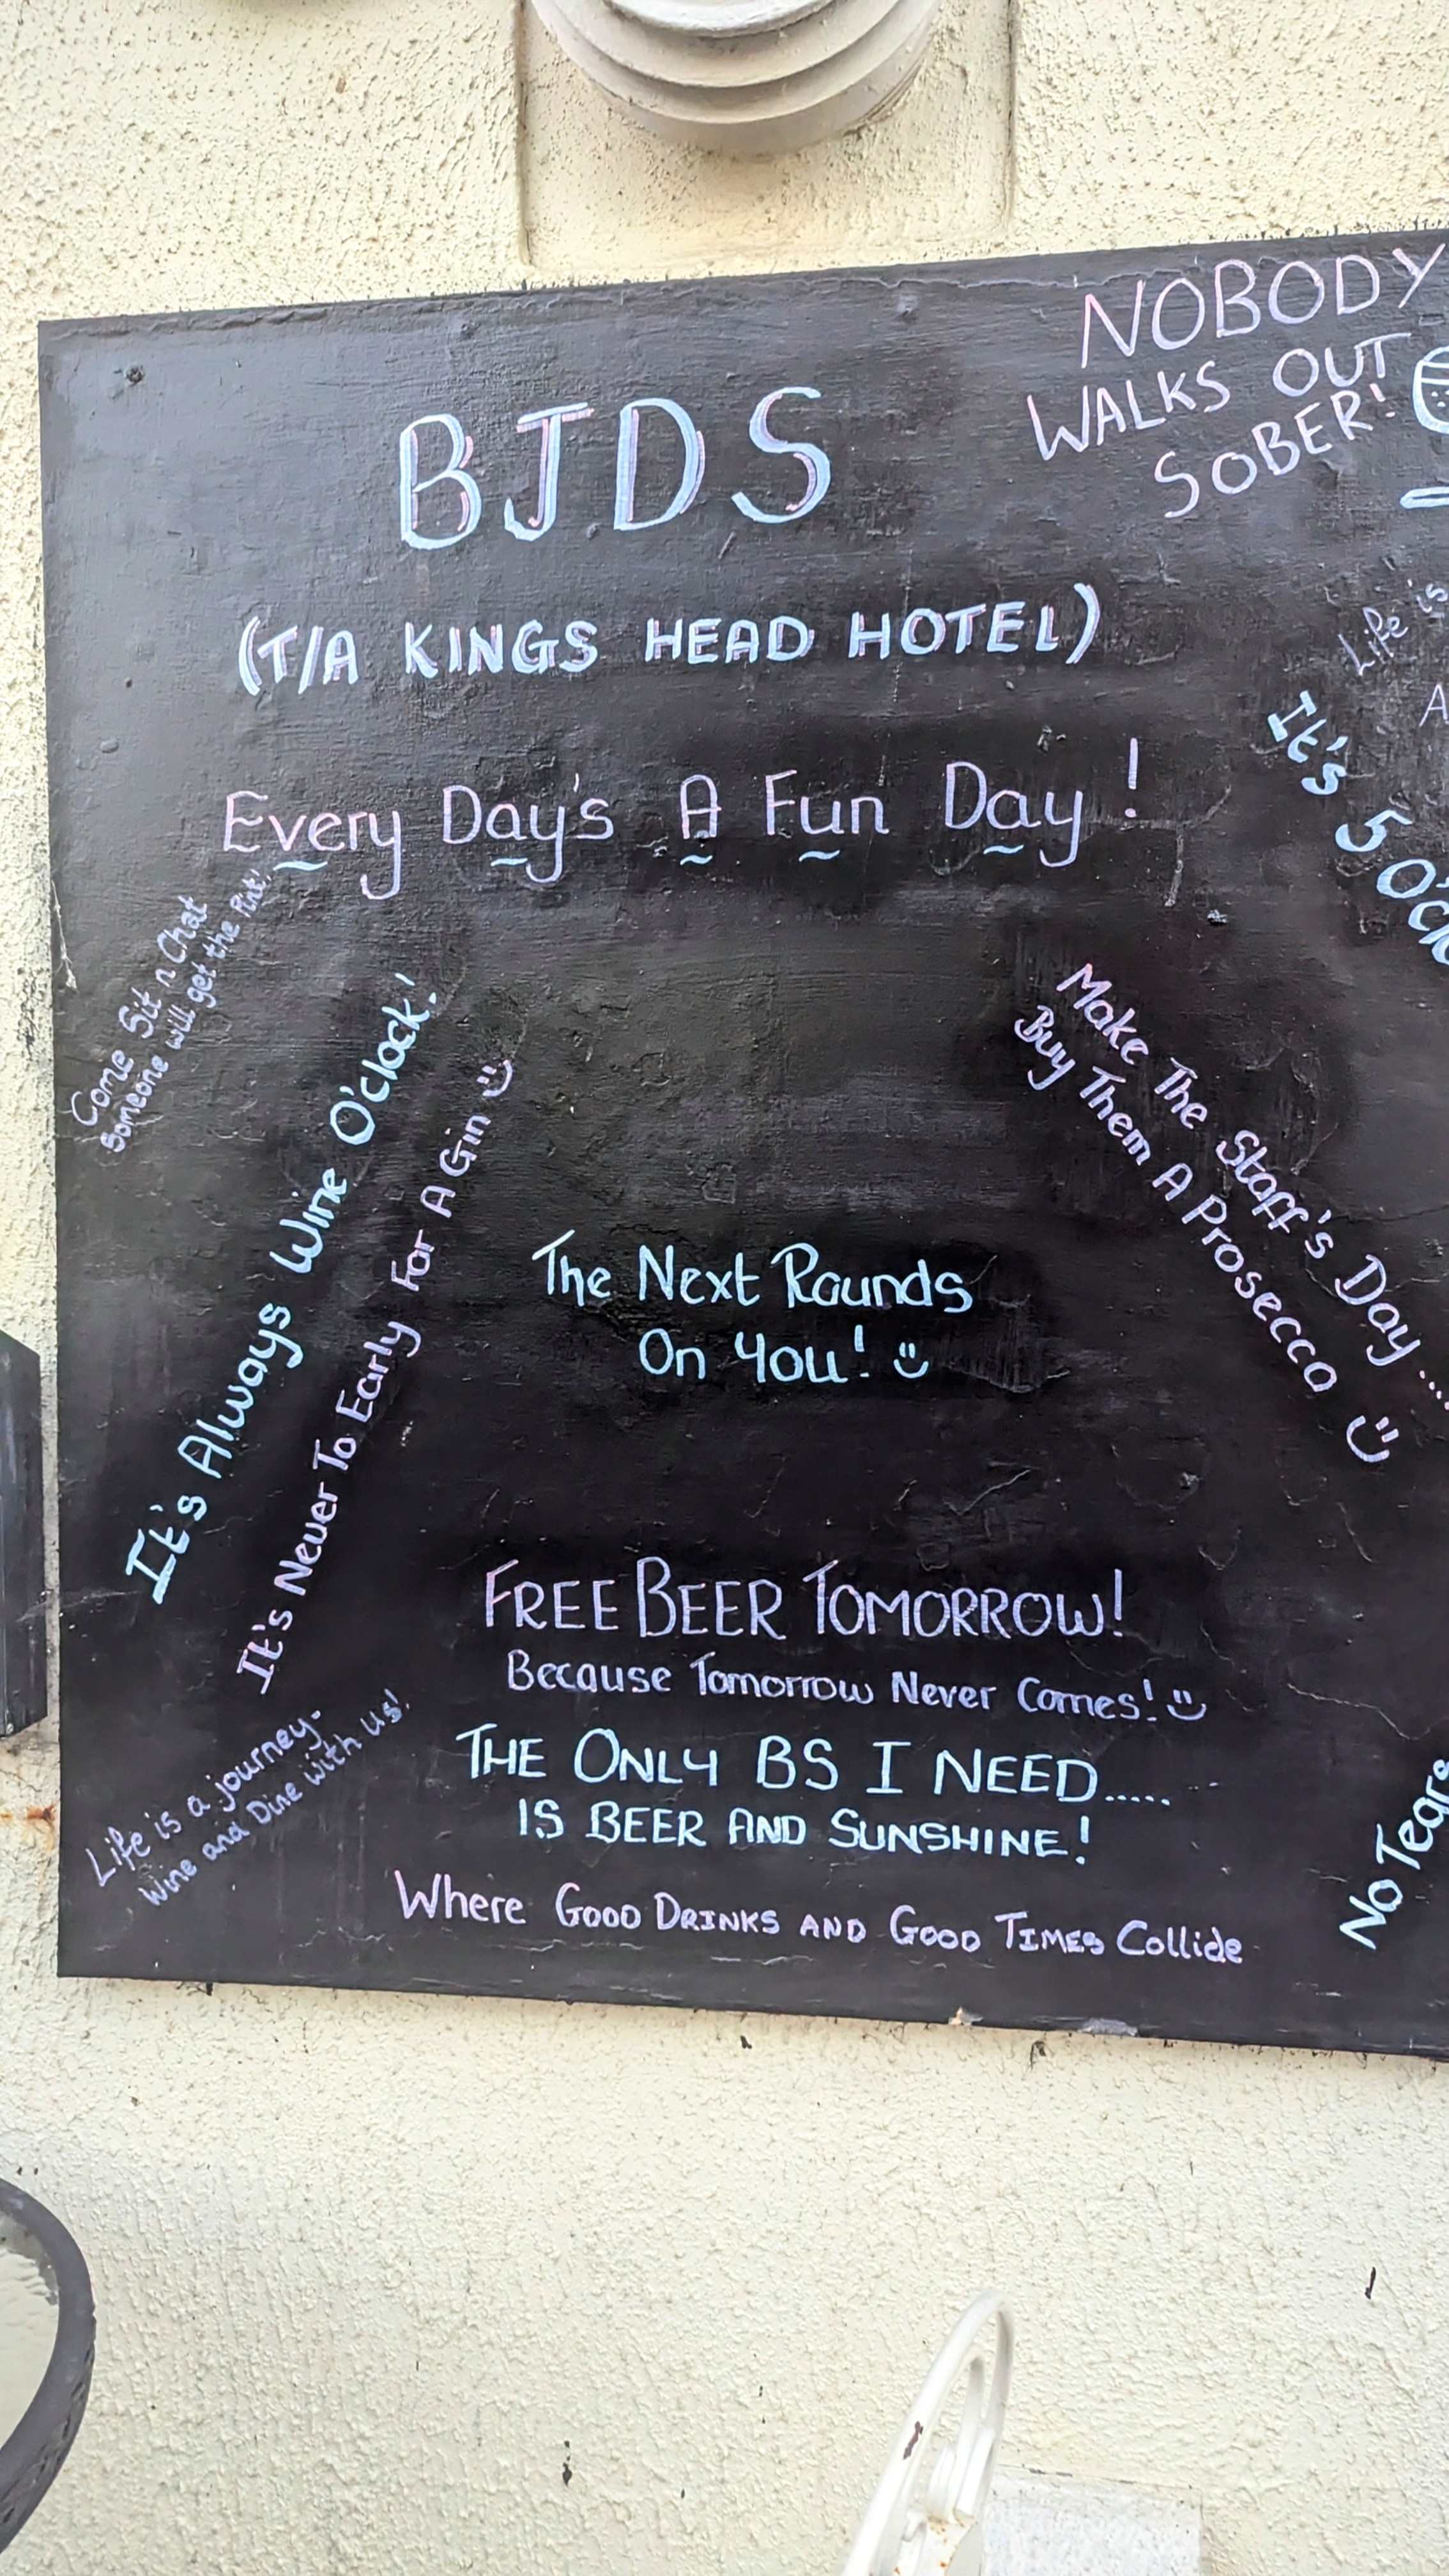 NOBODY
WALKS OUT
SOBER!
BJDS
(T/A KINGS HEAD HOTEL)
Life is
A
Every Day's A Fun Day!
It's 5 O'c
Come Sit n Chat
Someone will get the Pint!
It's Always Wine O'clock!
It's Never To Early For A Gin
Make The Staff's Day....
Buy Them A Prosecco
The Next Rounds
On You!
FREE BEER TOMORROW!
Because Tomorrow Never Comes!
THE ONLY BS I NEED.....
IS BEER AND SUNSHINE!
Life is a journey-
Wine and Dine with us!
Where GOOD DRINKS AND GOOD TIMES Collide
No Tears